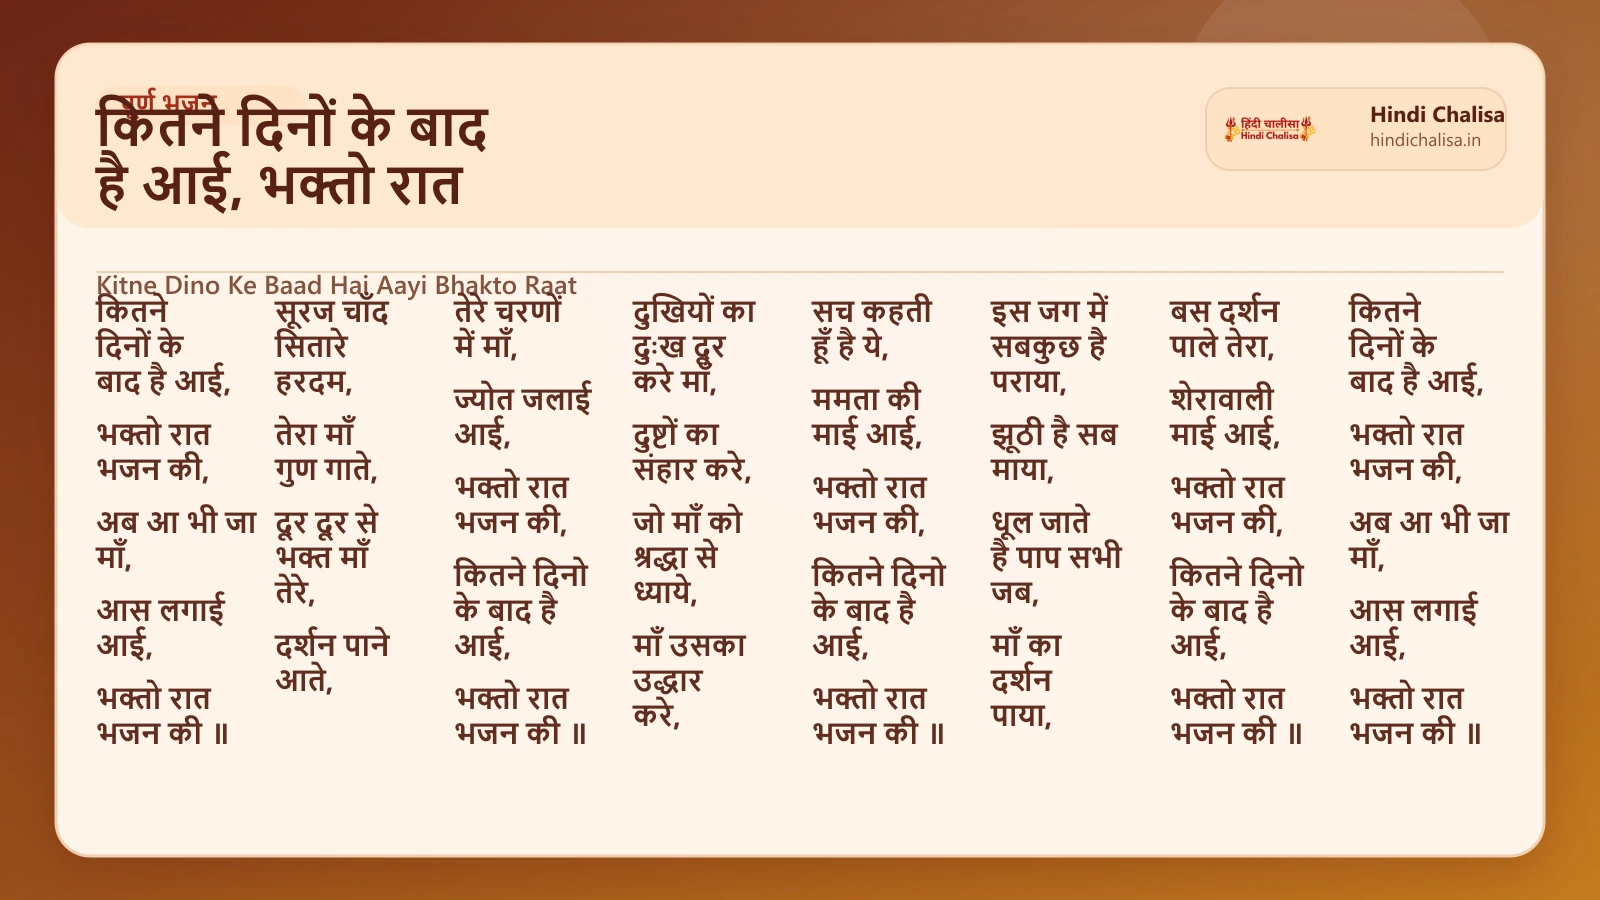 पूर्ण भजन
कितने दिनों के बाद
है आई, भक्तो रात
हिंदी चालीसा
Hindi Chalisa
Hindi Chalisa
hindichalisa.in
Kitne Dino Ke Baad Hai Aayi Bhakto Raat
कितने
दिनों के
बाद है आई,
भक्तो रात
भजन की,
अब आ भी जा
माँ,
आस लगाई
आई,
भक्तो रात
भजन की ॥
सूरज चाँद
सितारे
हरदम,
तेरा माँ
गुण गाते,
दूर दूर से
भक्त माँ
तेरे,
दर्शन पाने
आते,
तेरे चरणों
में माँ,
ज्योत जलाई
आई,
भक्तो रात
भजन की,
कितने दिनो
के बाद है
आई,
भक्तो रात
भजन की ॥
दुखियों का
दुःख दूर
करे माँ,
दुष्टों का
संहार करे,
जो माँ को
श्रद्धा से
ध्याये,
माँ उसका
उद्धार
करे,
सच कहती
हूँ है ये,
ममता की
माई आई,
भक्तो रात
भजन की,
कितने दिनो
के बाद है
आई,
भक्तो रात
भजन की ॥
इस जग में
सबकुछ है
पराया,
झूठी है सब
माया,
धूल जाते
है पाप सभी
जब,
माँ का
दर्शन
पाया,
बस दर्शन
पाले तेरा,
शेरावाली
माई आई,
भक्तो रात
भजन की,
कितने दिनो
के बाद है
आई,
भक्तो रात
भजन की ॥
कितने
दिनों के
बाद है आई,
भक्तो रात
भजन की,
अब आ भी जा
माँ,
आस लगाई
आई,
भक्तो रात
भजन की ॥